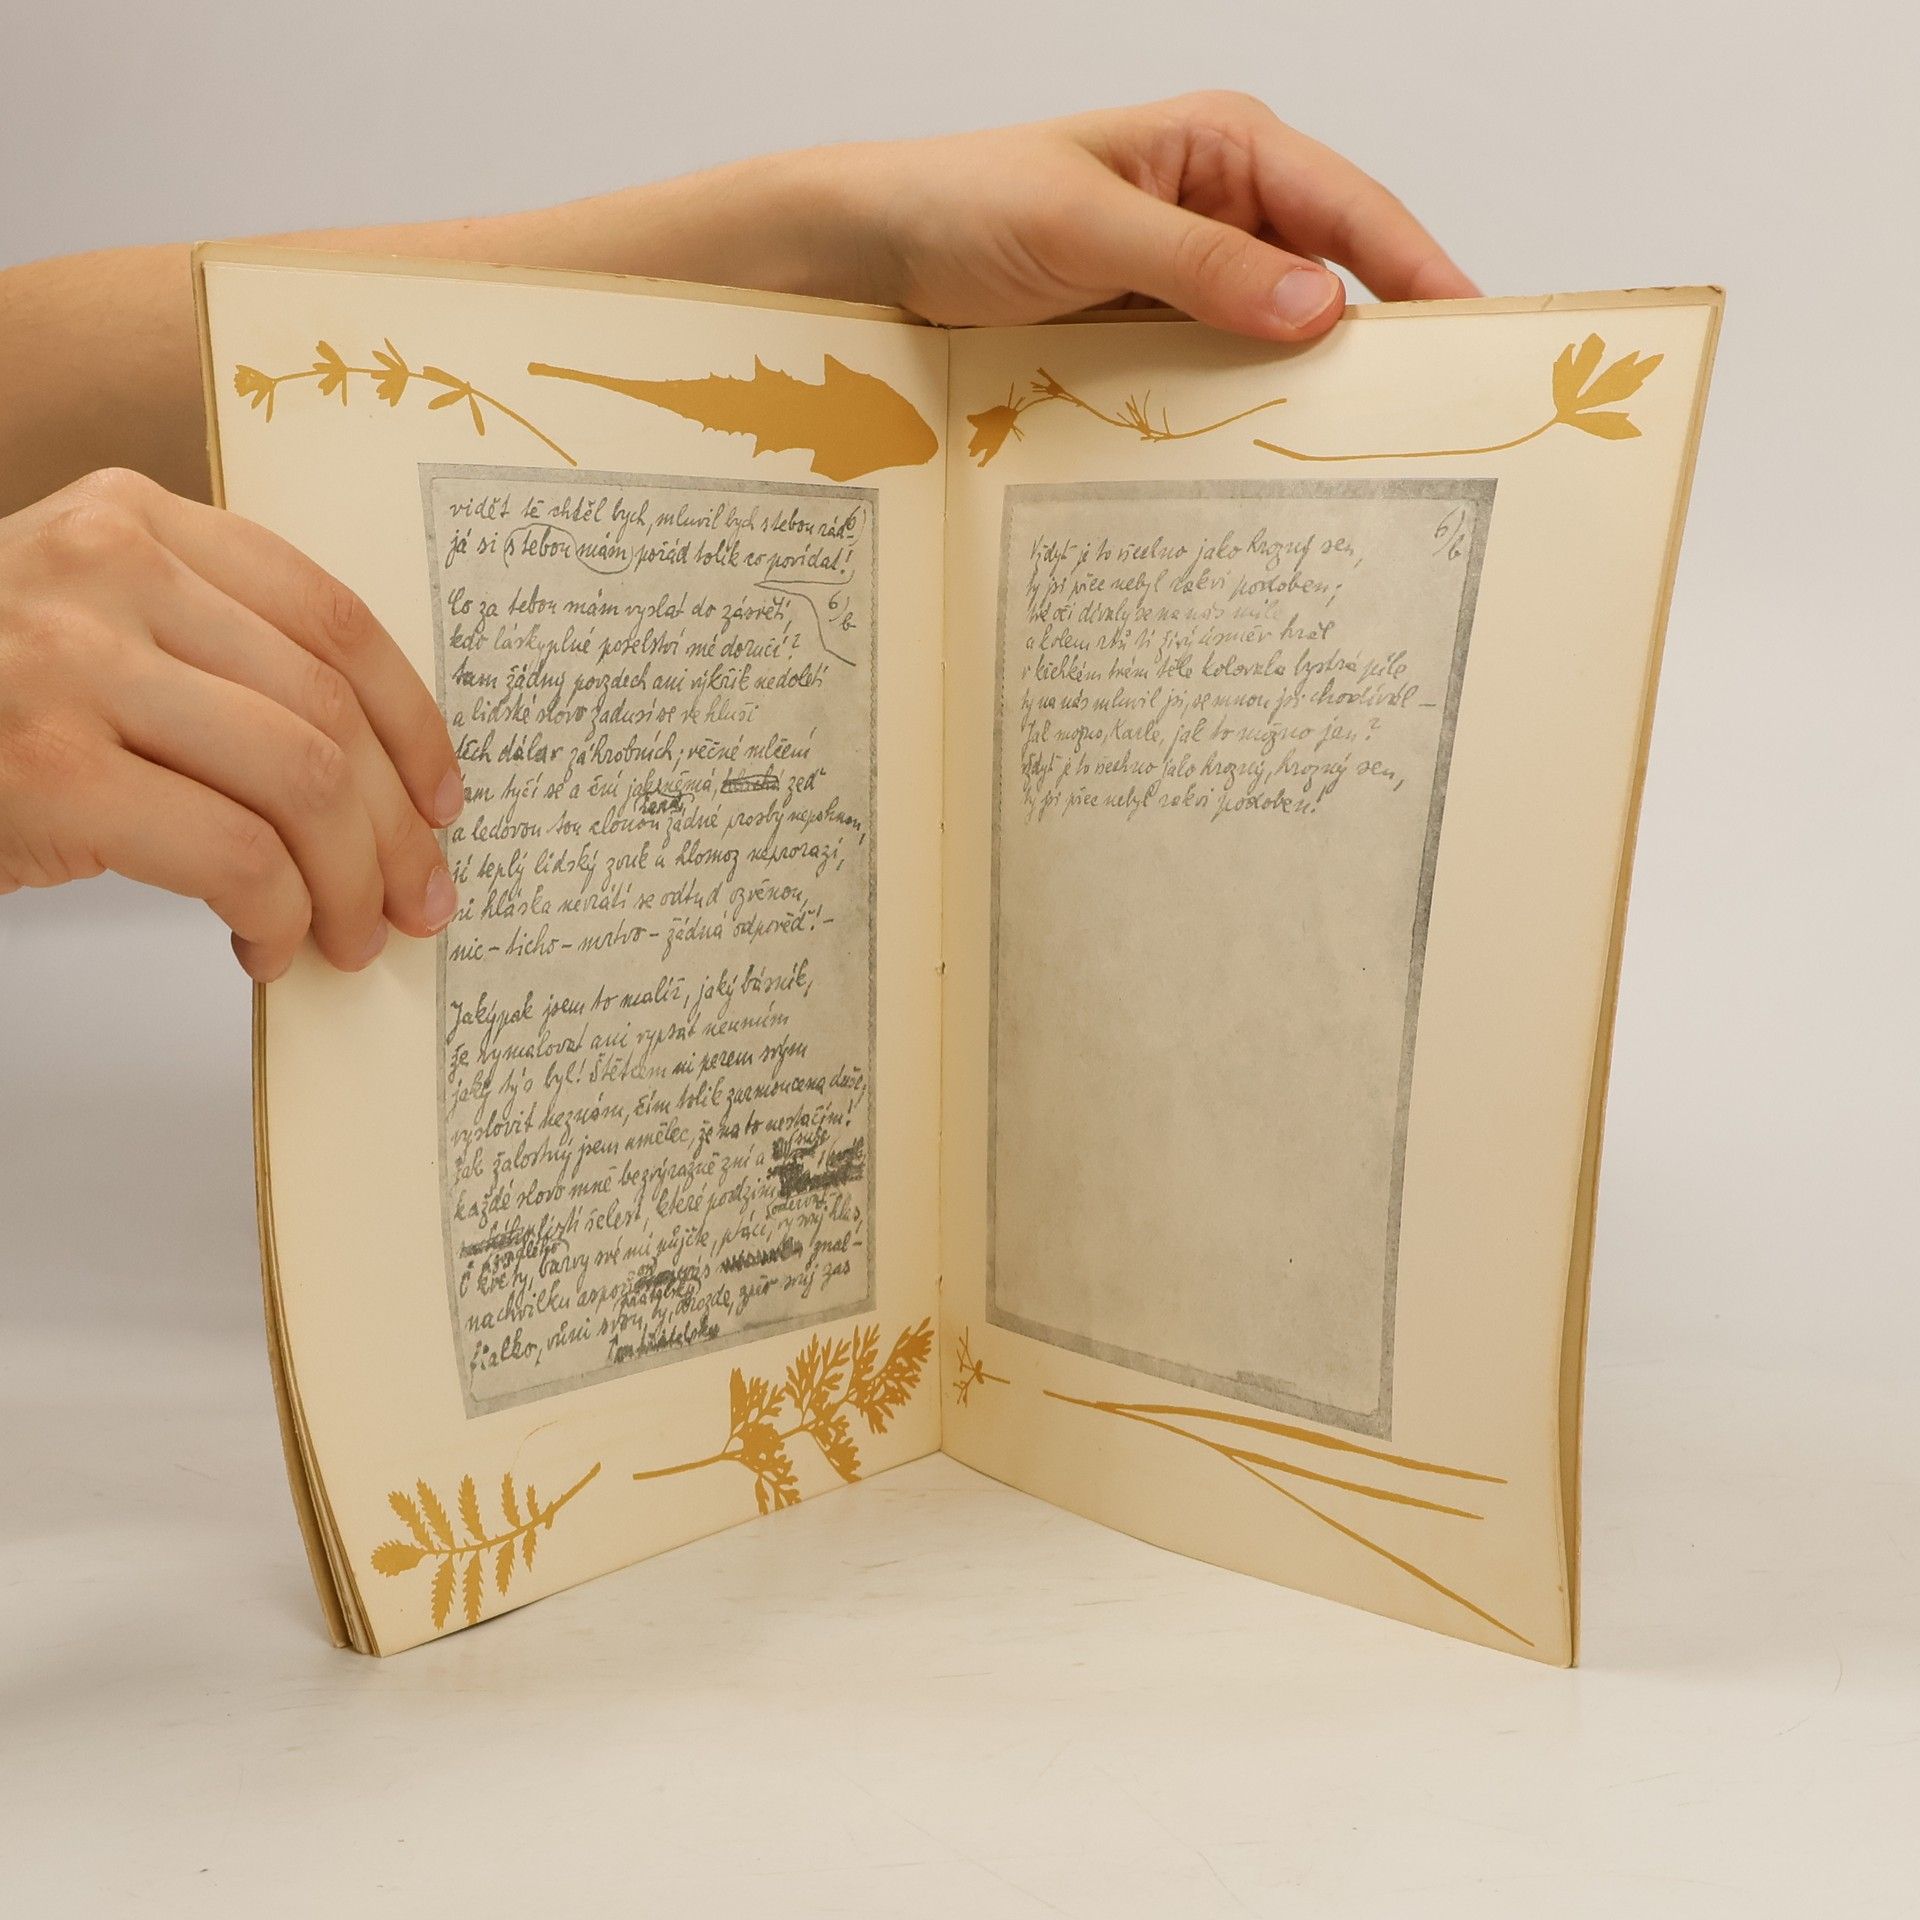 vidět tě chtěl bych, mluvil bych s tebou rád –
6)
já si s tebou mám pořád tolik co povídat!
6)/b
Co za tebou mám vyslat do zásvětí,
kdo láskyplné poselství mé doručí?
tam žádný povzdech ani výkřik nedoletí
a lidské slovo zadusí se ve hluši
těch dálav záhrobních; věčné mlčení
tam tyčí se a ční jak němá, zeď
a ledovou tou clonou žádné prosby nepohnou,
jí teplý lidský zvuk a hlomoz neprorazí,
ni hláska nevrátí se odtud ozvěnou,
nic – ticho – mrtvo – žádná odpověď! –
Jakýpak jsem to malíř, jaký básník,
že vymalovat ani vypsat neumím
jaký tys byl! Štětcem ni perem svým
vyslovit neznám, čím tolik zarmoucena duše,
jak žalostný jsem umělec, že na to nestačím!
každé slovo mně bezvýrazně zní a suše
listí šelest, které podzim
Ó květy, barvy své mi půjčte, ptáci, vy svůj hlas,
na chvilku aspoň
fialko, vůni svou, ty, drozde, zpěv svůj zas
6)/b
Vždyť je to všechno jako hrozný sen,
ty jsi přec nebyl rakvi podoben;
tvé oči dívaly se na nás mile
a kolem rtů ti živý úsměv hrál
v křehkém tvém těle kolovala bystrá píle
ty na nás mluvil jsi, se mnou jsi chodíval –
Jak možno, Karle, jak to možno jen?
vždyť je to všechno jako hrozný, hrozný sen,
ty jsi přec nebyl rakvi podoben!